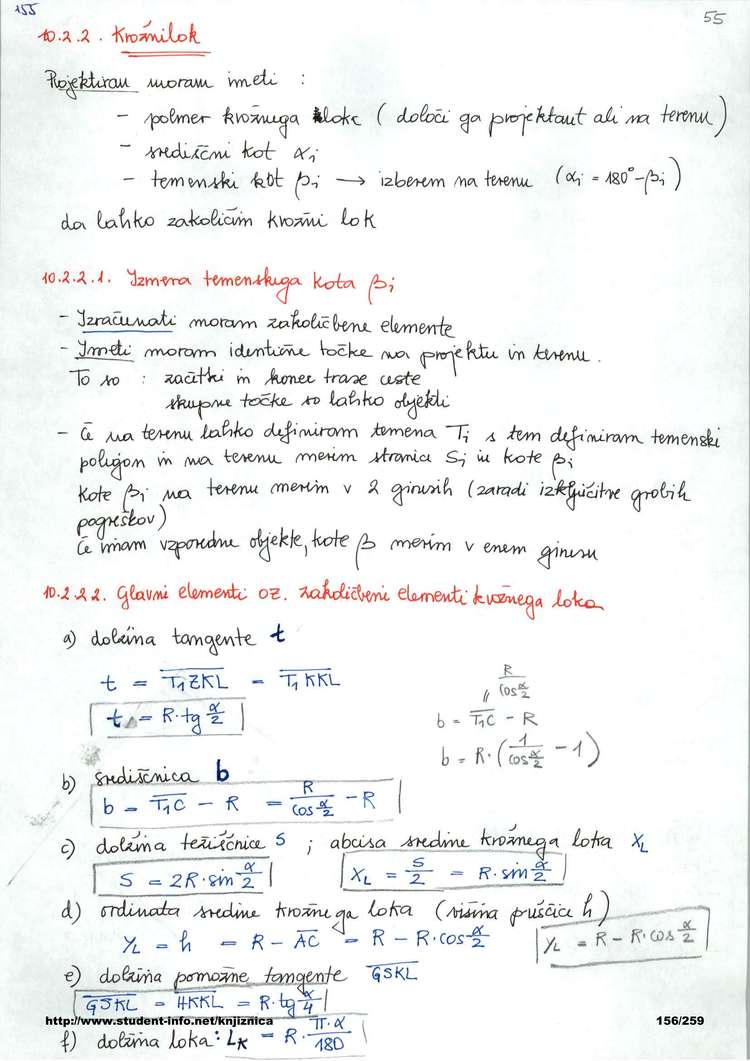 155
55
10.2.2. Krožni lok
Projektiran moram imeti :
- polmer krožnega loka ( določi ga projektant ali na terenu )
- središčni kot αi
- temenski kot βi → izberem na terenu (αi = 180° - βi)
da lahko zakoličim krožni lok
10.2.2.1. Izmera temenskega kota βi
- Izračunati moram zakoličbene elemente
- Imeti moram identične točke na projektu in terenu.
To so : začetki in konec trase ceste
skupne točke so lahko objekti
- Če na terenu lahko definiram temena Ti s tem definiram temenski
poligon in na terenu merim stranice Si in kote βi
Kote βi na terenu merim v 2 girusih (zaradi izključitve grobih
pogreškov)
Če imam vzporedne objekte, kote β merim v enem girusu
10.2.2.2. Glavni elementi oz. zakoličbeni elementi krožnega loka
a) dolžina tangente t
t = T1ZKL = T1KKL
t = R·tg α/2
R/cos α/2
b = T1C - R
b = R·(1/cos α/2 - 1)
b) središčnica b
b = T1C - R = R/cos α/2 - R
c) dolžina težiščnice S ; abcisa sredine krožnega loka XL
S = 2R·sin α/2
XL = S/2 = R·sin α/2
d) ordinata sredine krožnega loka (višina puščice h)
YL = h = R - AC = R - R·cos α/2
YL = R - R·cos α/2
e) dolžina pomožne tangente GSKL
GSKL = HKKL = R·tg α/4
http://www.student-info.net/knjiznica
156/259
f) dolžina loka: LK = R·π·α/180